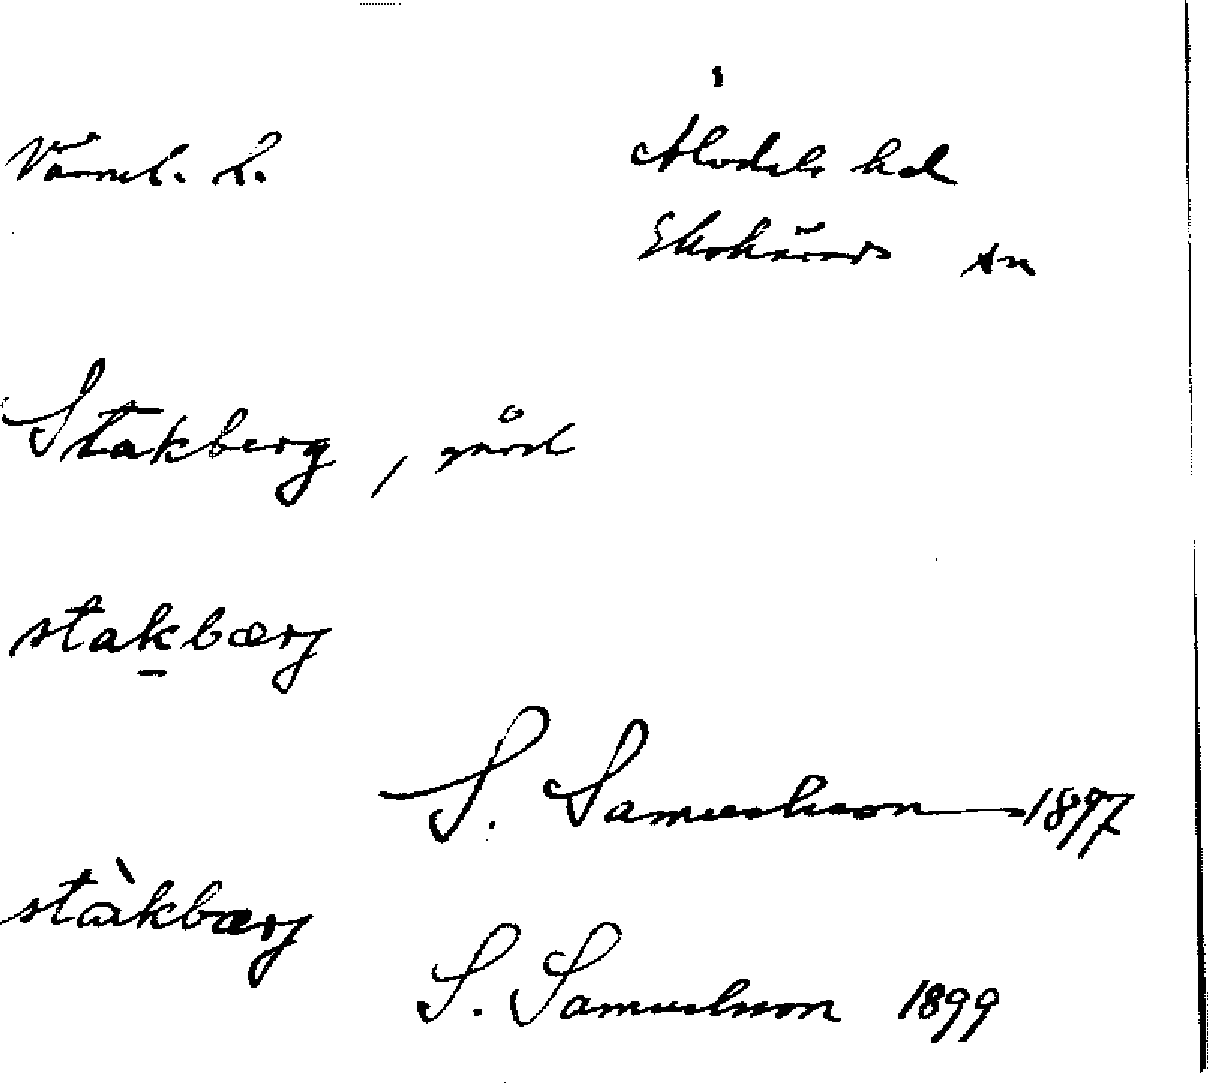 Värml. l.
Älvdals hd
Ekshärads sn
Stakberg, gård
stakbærj
S. Samuelsson 1897
stàkbærj
S. Samuelsson 1899